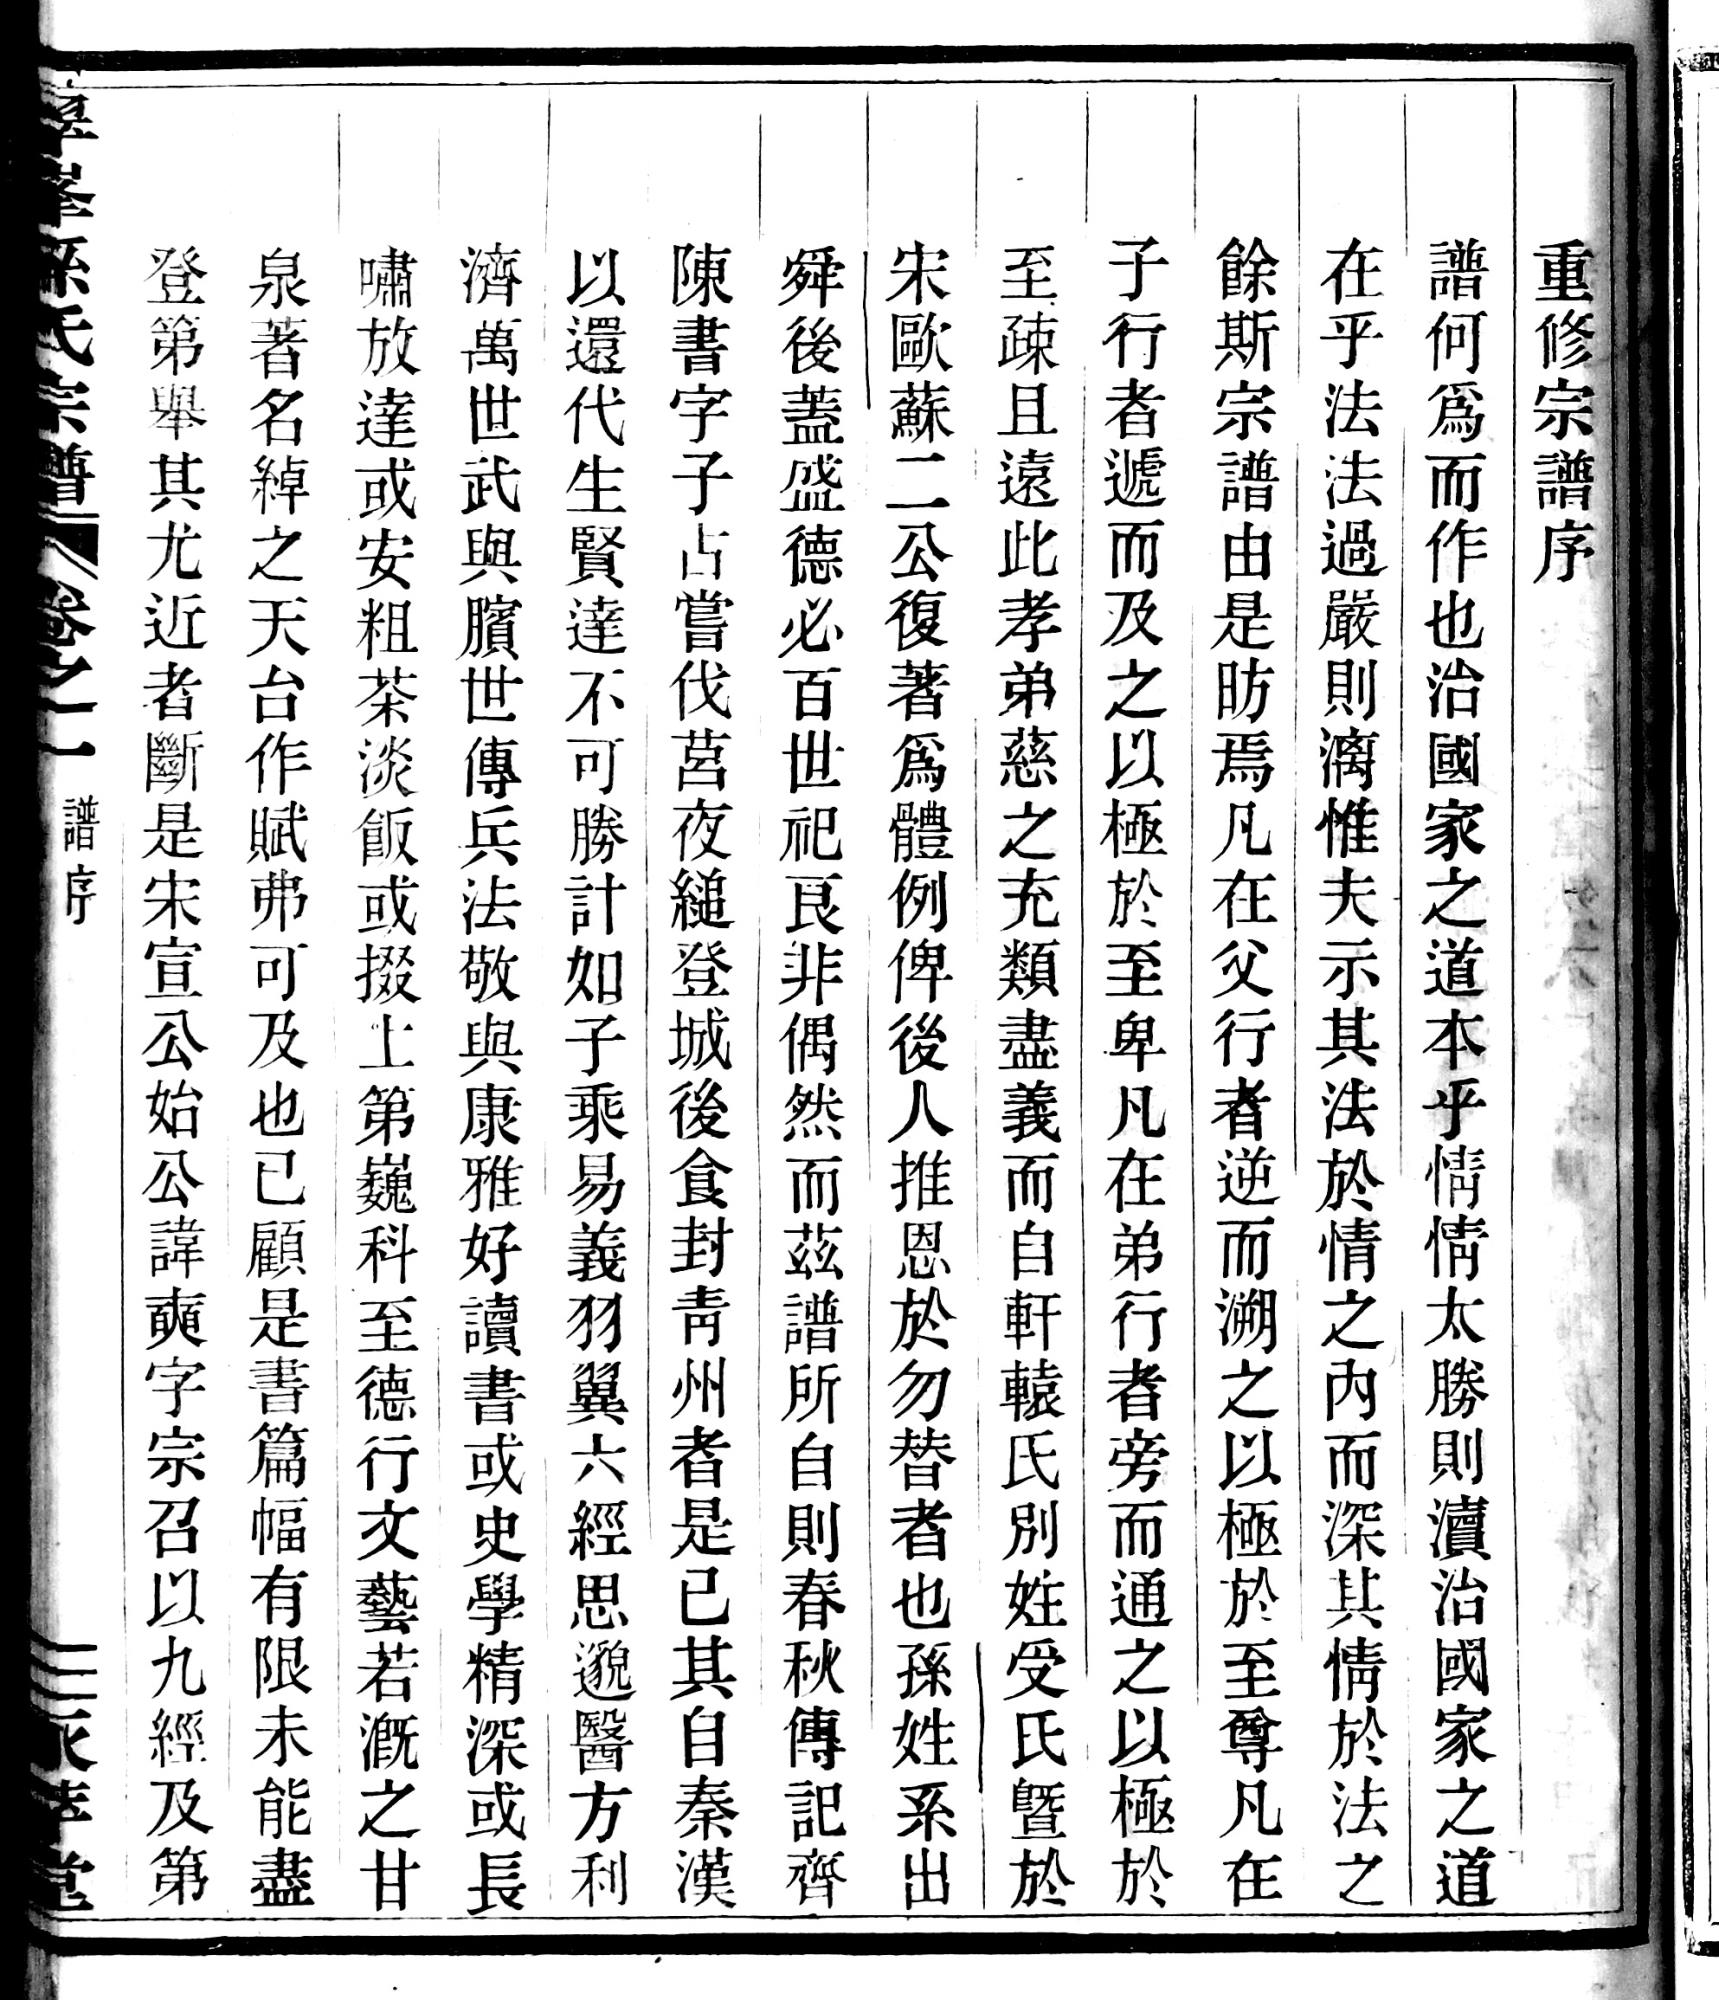 重修宗譜序
譜何爲而作也治國家之道本乎情情太勝則瀆治國家之道
在乎法法過嚴則漓惟夫示其法於情之內而深其情於法之
餘斯宗譜由是昉焉凡在父行者逆而溯之以極於至尊凡在
子行者遞而及之以極於至卑凡在弟行者旁而通之以極於
至疎且遠此孝弟慈之充類盡義而自軒轅氏別姓受氏曁於
宋歐蘇二公復著爲體例俾後人推恩於勿替者也孫姓系出
舜後葢盛德必百世祀良非偶然而茲譜所自則春秋傳記齊
陳書字子占嘗伐莒夜縋登城後食封靑州者是已其自秦漢
以還代生賢達不可勝計如子乘易義羽翼六經思邈醫方利
濟萬世武與臏世傳兵法敬與康雅好讀書或史學精深或長
嘯放達或安粗茶淡飯或掇上第巍科至德行文藝若漑之甘
泉著名綽之天台作賦弗可及也已顧是書篇幅有限未能盡
登第舉其尤近者斷是宋宣公始公諱奭字宗召以九經及第
孫氏宗譜 卷之一 譜序 二 堂